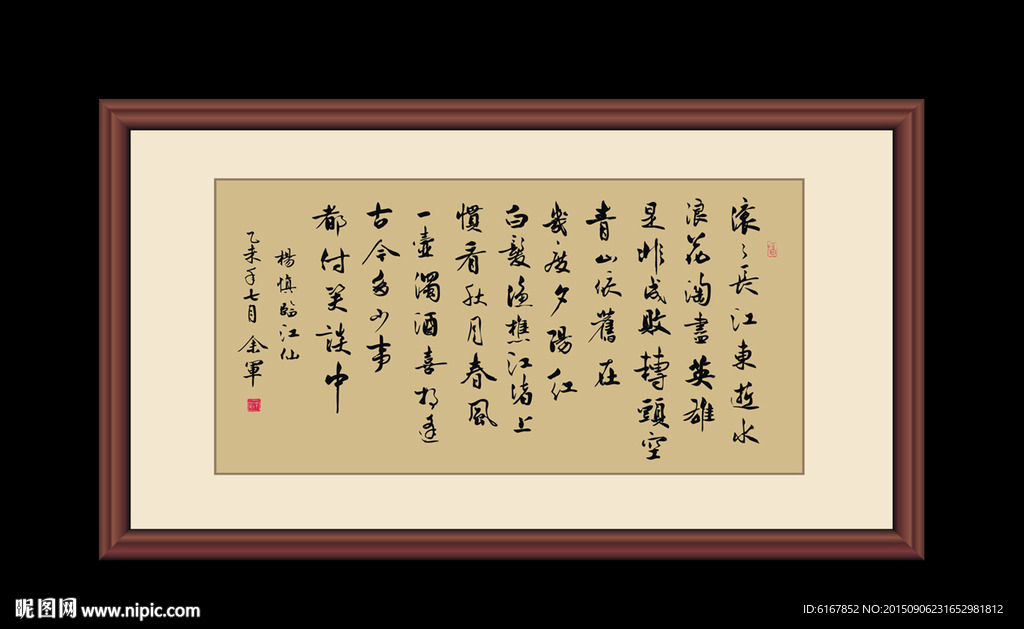 滚〻長江東逝水
浪花淘盡英雄
是非成敗轉頭空
青山依舊在
幾度夕陽紅
白髮漁樵江渚上
慣看秋月春風
一壺濁酒喜相逢
古今多少事
都付笑談中
楊慎臨江仙
乙未年七月 余軍
昵图网 www.nipic.com
ID:6167852 NO:20150906231652981812